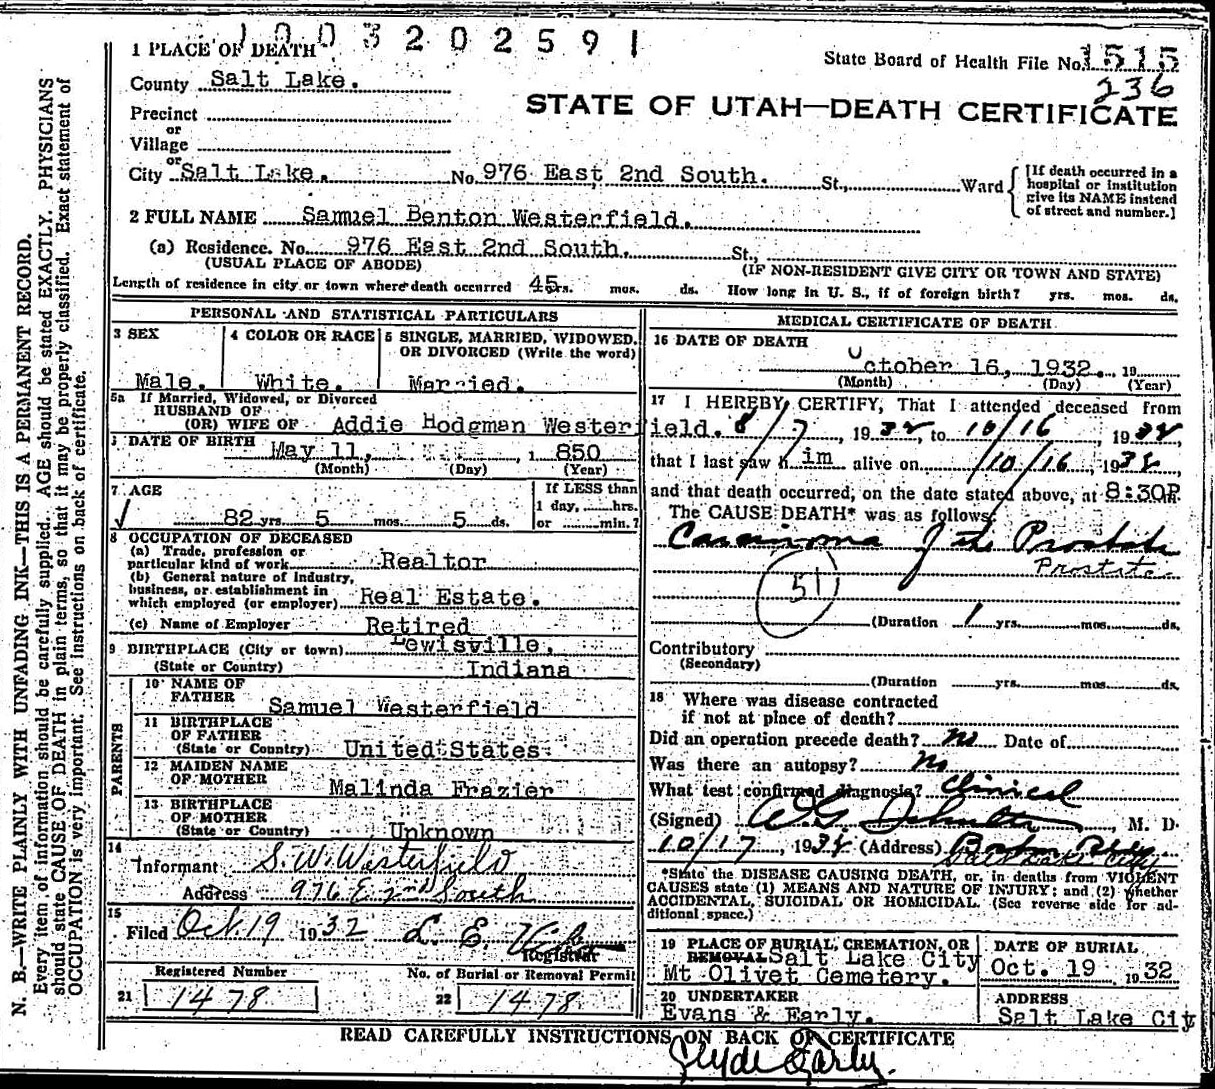 1003202591
1 PLACE OF DEATH
State Board of Health File No. 1515
236
County Salt Lake.
STATE OF UTAH—DEATH CERTIFICATE
Precinct
or
Village
or
City Salt Lake. No. 976 East 2nd South. St., Ward
[If death occurred in a hospital or institution give its NAME instead of street and number.]
2 FULL NAME Samuel Benton Westerfield.
(a) Residence. No. 976 East 2nd South. St.,
(USUAL PLACE OF ABODE) (IF NON-RESIDENT GIVE CITY OR TOWN AND STATE)
Length of residence in city or town where death occurred 45 yrs. mos. ds. How long in U. S., if of foreign birth? yrs. mos. ds.
PERSONAL AND STATISTICAL PARTICULARS
3 SEX 4 COLOR OR RACE 5 SINGLE, MARRIED, WIDOWED,
OR DIVORCED (Write the word)
Male. White. Married.
5a If Married, Widowed, or Divorced
HUSBAND OF
(OR) WIFE OF Addie Hodgman Westerfield.
DATE OF BIRTH
May 11, 1850
(Month) (Day) (Year)
7 AGE If LESS than
82 yrs. 5 mos. 5 ds. 1 day, hrs.
or min.?
8 OCCUPATION OF DECEASED
(a) Trade, profession or
particular kind of work Realtor
(b) General nature of industry,
business, or establishment in
which employed (or employer) Real Estate.
(c) Name of Employer Retired
9 BIRTHPLACE (City or town) Lewisville,
(State or Country) Indiana
PARENTS
10 NAME OF
FATHER Samuel Westerfield
11 BIRTHPLACE
OF FATHER
(State or Country) United States
12 MAIDEN NAME
OF MOTHER Malinda Frazier
13 BIRTHPLACE
OF MOTHER
(State or Country) Unknown
14
Informant S. W. Westerfield
Address 976 E 2nd South
15
Filed Oct 19 1932 L. E.
Registrar
Registered Number No. of Burial or Removal Permit
21 1478 22 1478
MEDICAL CERTIFICATE OF DEATH
16 DATE OF DEATH
October 16, 1932. 19
(Month) (Day) (Year)
17 I HEREBY CERTIFY, That I attended deceased from
8/7, 1932, to 10/16, 1932,
that I last saw him alive on 10/16, 1932,
and that death occurred, on the date stated above, at 8:30P.
The CAUSE DEATH* was as follows:
Carcinoma of the Prostate
Prostate
51
(Duration 1 yrs. mos. ds.
Contributory
(Secondary)
(Duration yrs. mos. ds.
18 Where was disease contracted
if not at place of death?
Did an operation precede death? no Date of
Was there an autopsy? no
What test confirmed diagnosis? Clinical
(Signed) W. G. M. D.
10/17, 1932 (Address)
Salt Lake City
*State the DISEASE CAUSING DEATH, or, in deaths from VIOLENT
CAUSES state (1) MEANS AND NATURE OF INJURY; and (2) whether
ACCIDENTAL, SUICIDAL OR HOMICIDAL. (See reverse side for ad-
ditional space.)
19 PLACE OF BURIAL, CREMATION, OR
REMOVAL Salt Lake City
Mt Olivet Cemetery.
DATE OF BURIAL
Oct. 19 1932
20 UNDERTAKER
Evans & Early.
ADDRESS
Salt Lake City
READ CAREFULLY INSTRUCTIONS ON BACK OF CERTIFICATE
Clyde Early.
N. B.—WRITE PLAINLY WITH UNFADING INK—THIS IS A PERMANENT RECORD.
Every item of information should be carefully supplied. AGE should be stated EXACTLY. PHYSICIANS
should state CAUSE OF DEATH in plain terms, so that it may be properly classified. Exact statement of
OCCUPATION is very important. See instructions on back of certificate.